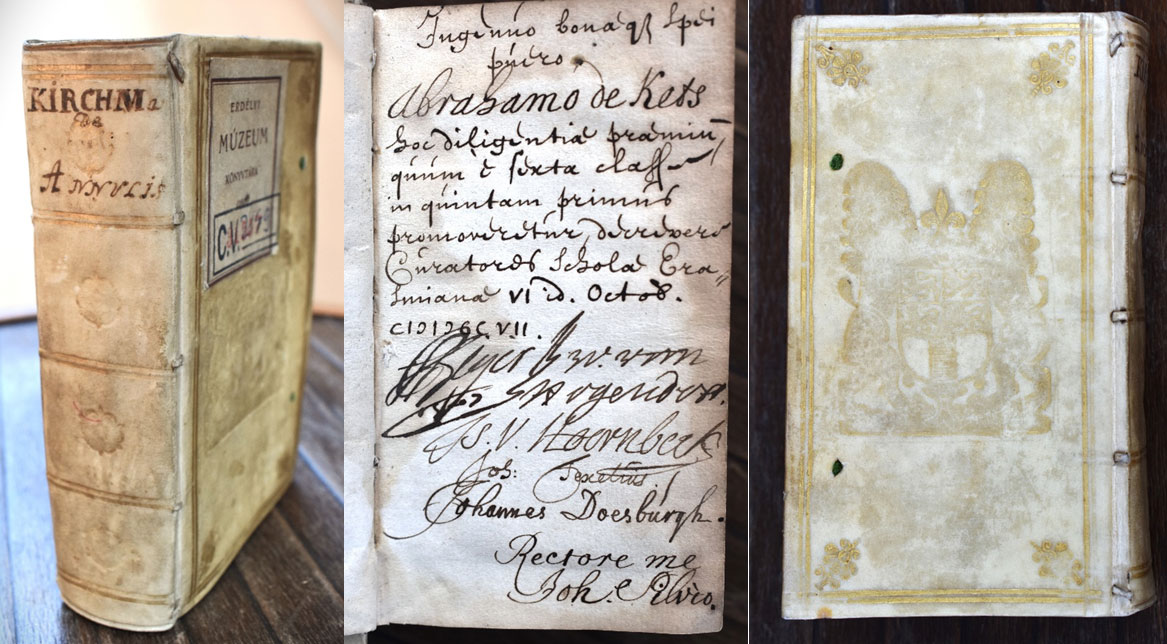 KIRCHMa
De
ANNVLIS
ERDÉLYI
MÚZEUM
KÖNYVTÁRA
C.V.
Ingenuo bonæq3 spei
puero,
Abrahamo de Kets
hoc diligentiæ præmiũ
quum è sexta classe
in quintam primus
promoveretur, decrevere
Curatores Scholæ Era„
smianæ VI id. Octob.
CIƆIƆCCVII.
Hogendorp.
Is. V. Hoornbeck
Joh: Texelius
Johannes Doesburgh.
Rectore me
Joh. e Silvio.